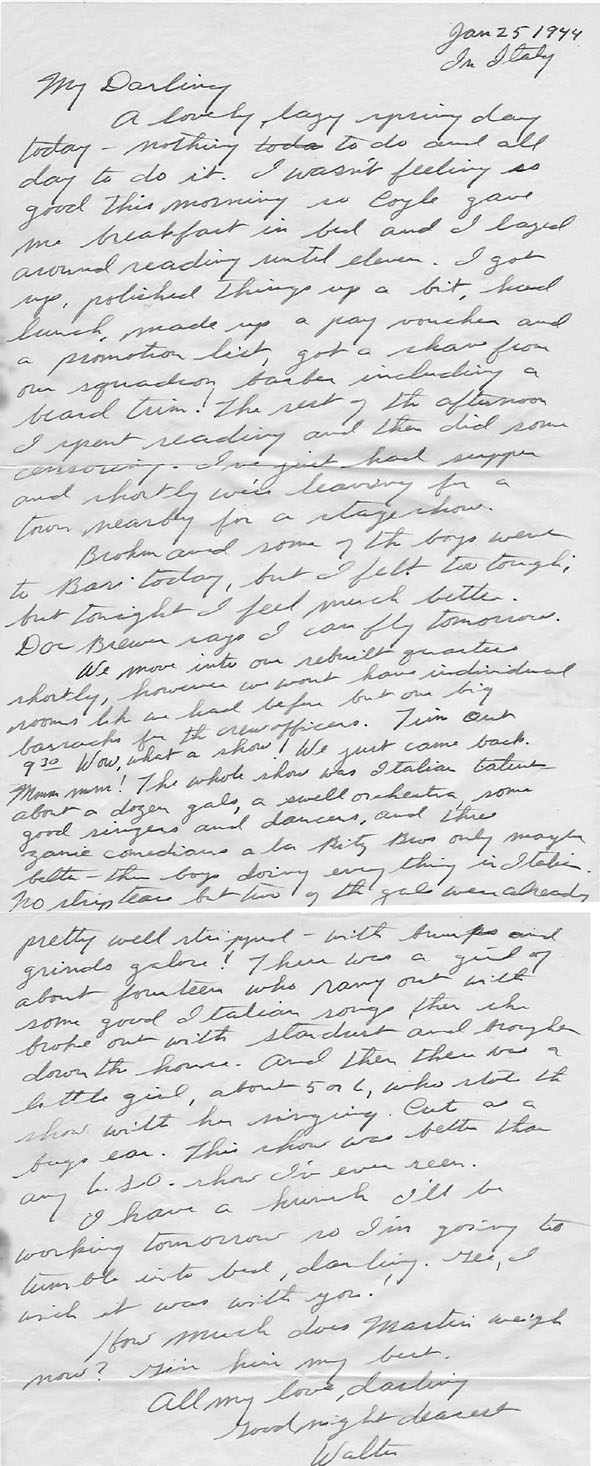 Jan 25 1944
In Italy
My Darling
A lovely, lazy spring day
today - nothing toda to do and all
day to do it. I wasn't feeling so
good this morning so Coyle gave
me breakfast in bed and I lazed
around reading until eleven. I got
up, polished things up a bit, had
lunch, made up a pay voucher and
a promotion list, got a shave from
our squadron barber including a
beard trim! The rest of the afternoon
I spent reading and then did some
censoring. I've just had supper
and shortly we're leaving for a
town nearby for a stageshow.
and some of the boys went
to Bari today, but I felt too tough;
but tonight I feel much better.
Doc Brewer says I can fly tomorrow.
We move into our rebuilt quarters
shortly, however we wont have individual
rooms like we had before but one big
barracks for the crew officers. Time out
9 30 Wow, what a show! We just came back.
Mmm mmm! The whole show was Italian talent
about a dozen gals, a swell orchestra, some
good singers and dancers, and three
zanie comedians a la Ritz Bros only maybe
better - then boys doing everything in Italian.
No striptease but two of the gals were already
pretty well stripped - with bumps and
grinds galore! There was a girl of
about fourteen who rang out with
some good Italian songs then she
broke out with stardust and brought
down the house. And then there was a
little girl, about 5 or 6, who stole the
show with her singing. Cute as a
bugs ear. This show was better than
any U.S.O. show I've ever seen.
I have a hunch I'll be
working tomorrow so I'm going to
tumble into bed, darling. Gee, I
wish it was with you.
How much does Martin weigh
now? Give him my best.
All my love, darling
Good night dearest
Walter